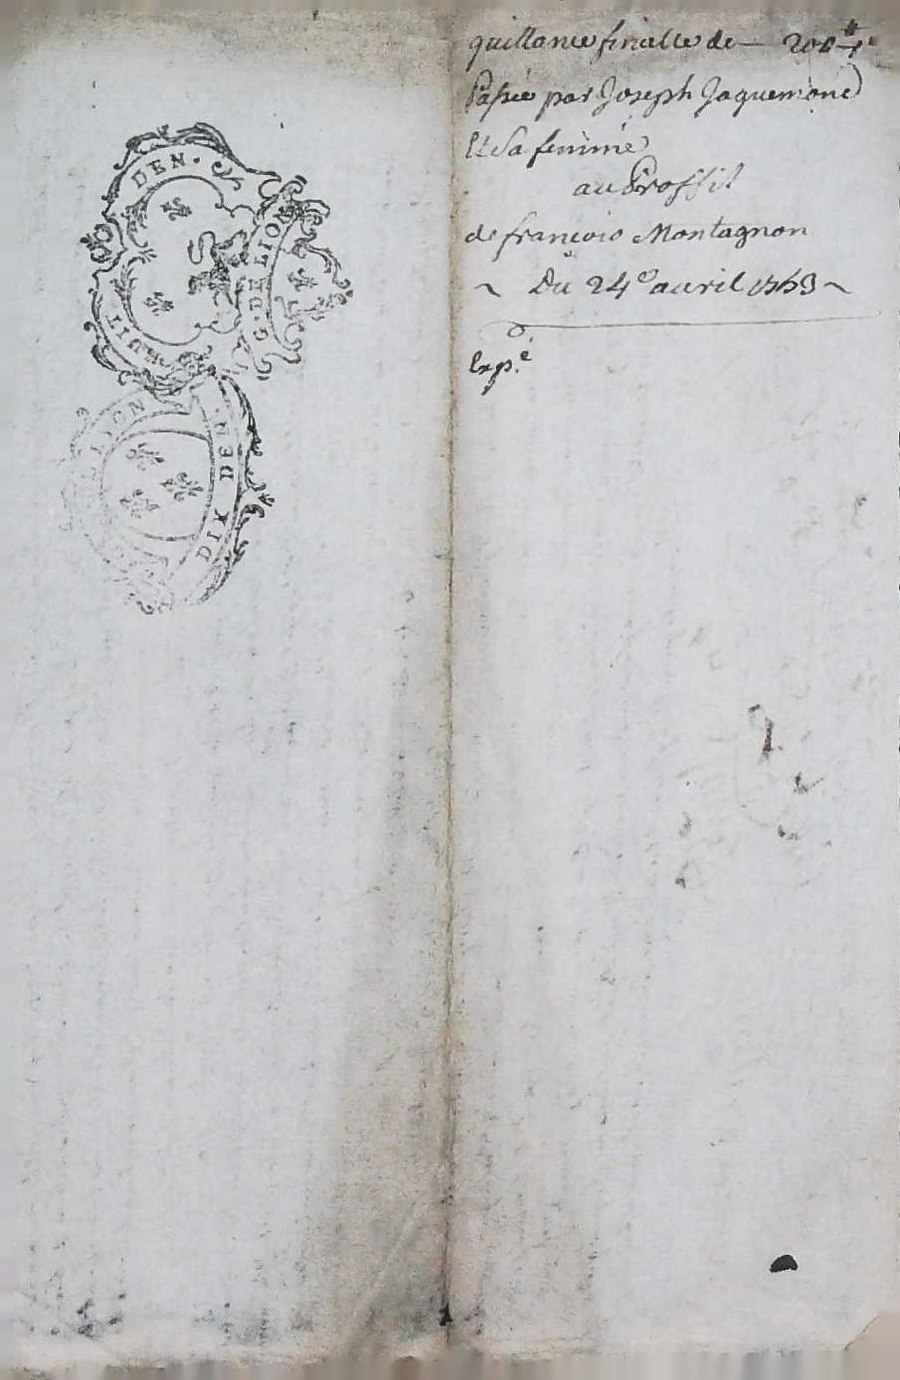 HUIT DEN.
G. DE LION
LION
DIX DEN
quittance finalle de — 200 ₶
Passée par Joseph Jaquemond
Et Sa femme
au Proffit
de françois Montagnon
~ Du 24e avril 1763 ~
Expé